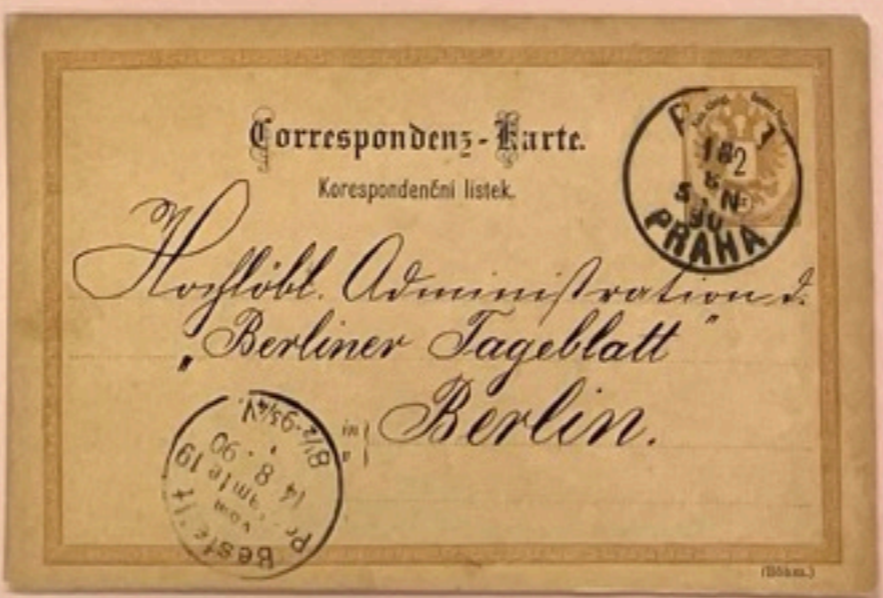 Correspondenz-Karte.
Korespondenční lístek.
2
PRAHA
Hochlöbl. Administration d.
„Berliner Tageblatt”
in
Berlin.
Bestellt
vom
14 8 90
(Böhm.)